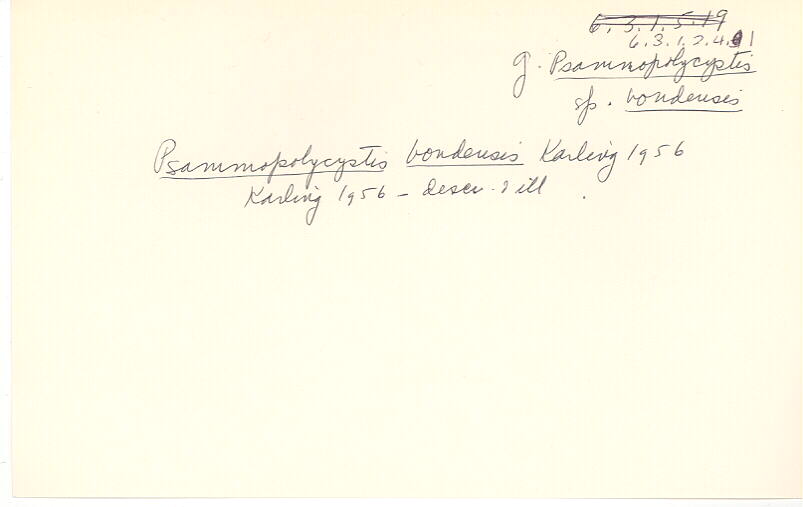 6.3.1.5.19
6.3.1.2.4.1
g. Psammopolycystis
sp. bondensis
Psammopolycystis bondensis Karling 1956
Karling 1956 – descr. & ill